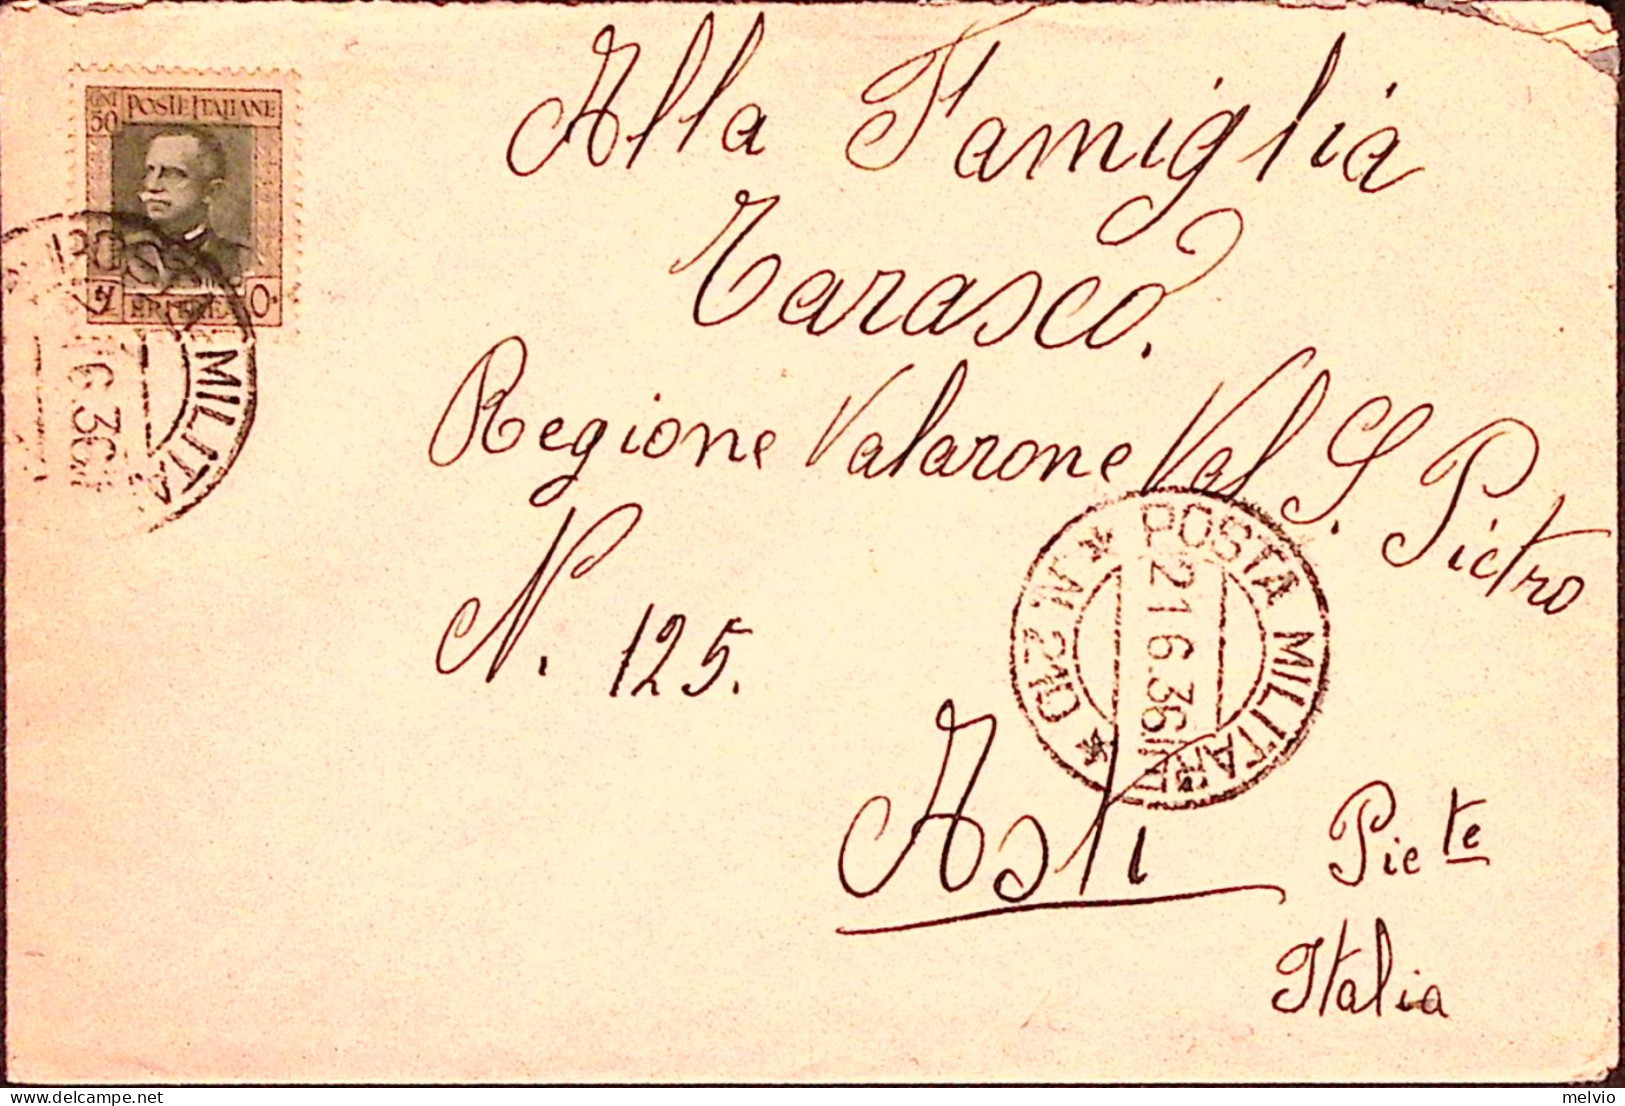 POSTE ITALIANE
CENT 50
ERITREA
POSTA MILITA
6.36
Alla Famiglia
Tarasco.
Regione Valarone Val S. Pietro
N. 125.
POSTA MILITARE
21 6.36
Asti Piete
Italia
delcampe.net
melvio